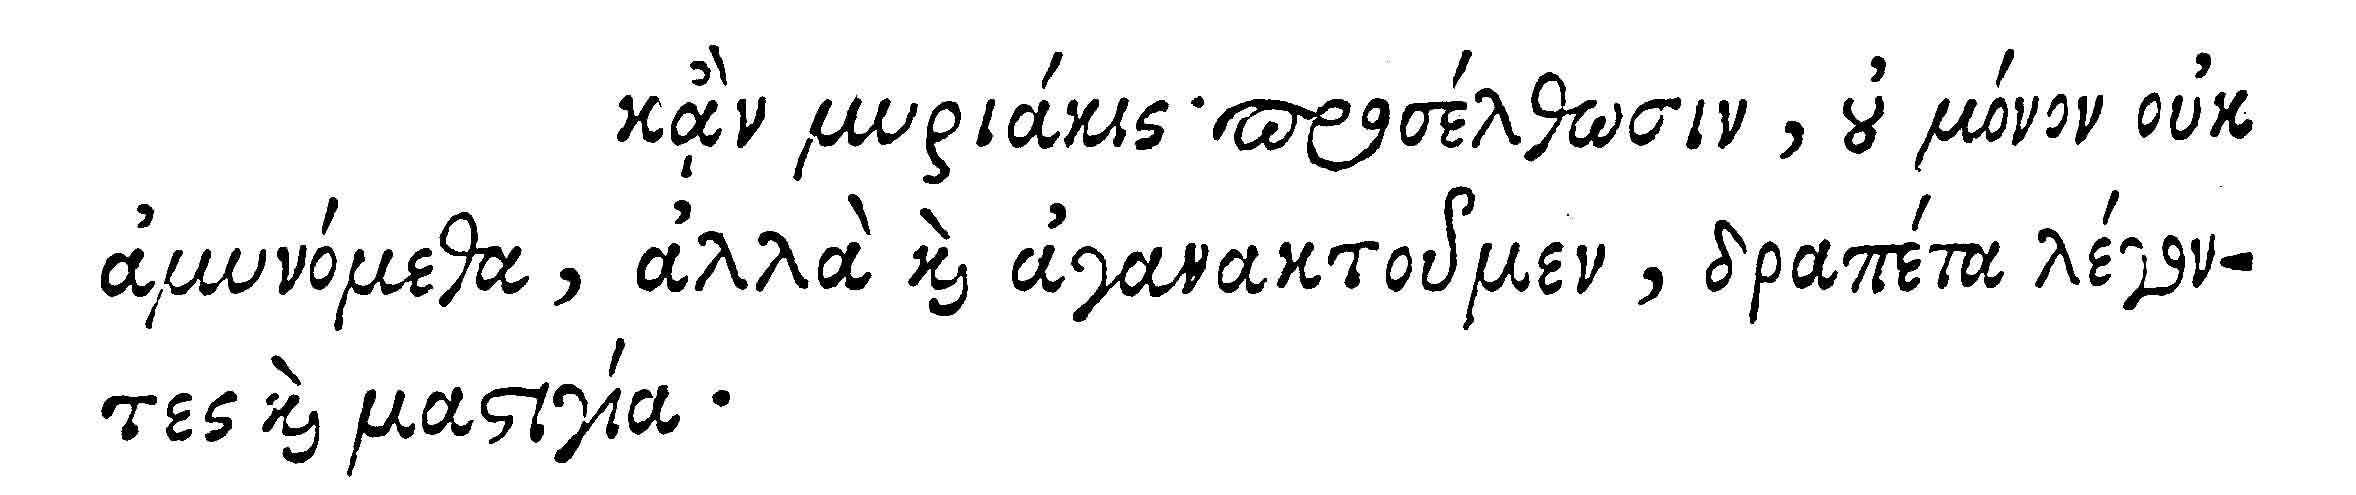 κᾂν μυριάκις· προσέλθωσιν, οὐ μόνον οὐκ
ἀμυνόμεθα, ἀλλὰ καὶ ἀγανακτοῦμεν, δραπέτα λέγον-
τες καὶ μαστιγία.